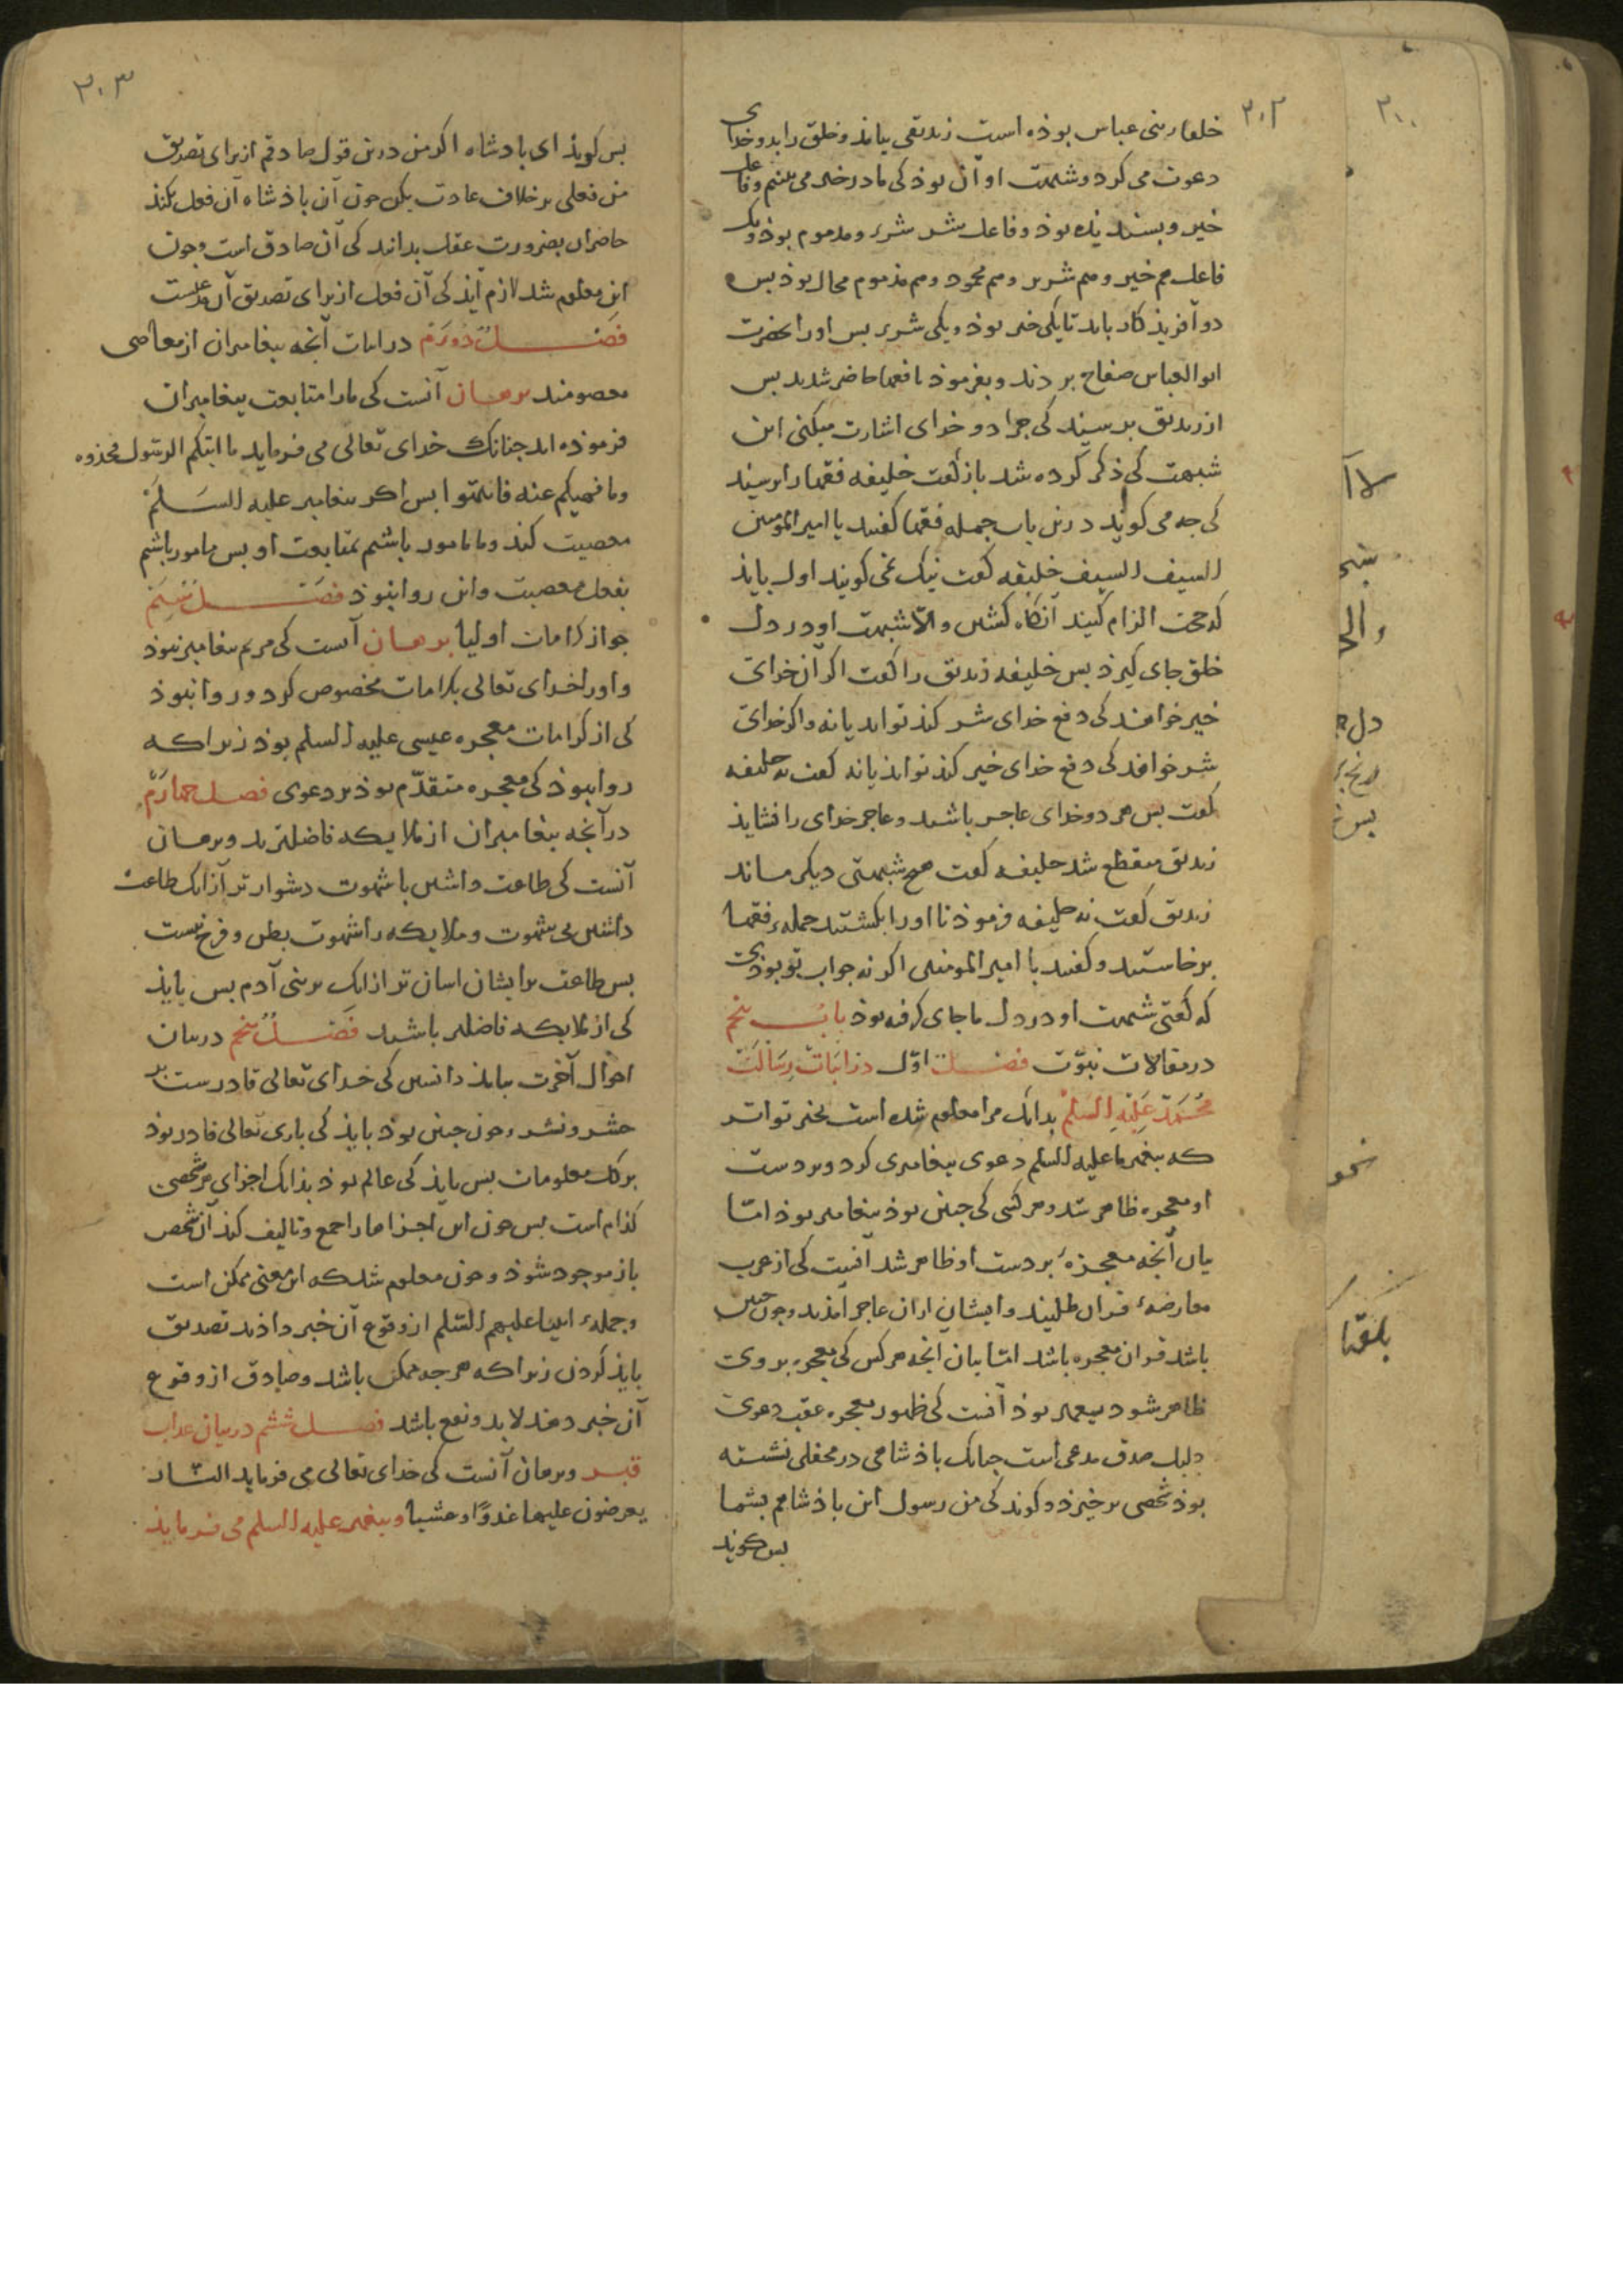 ۳۰۲
خلفاء بنی عباس بوذه است زندیقی بیامذ و خلق را بدو خدای
دعوت می کرد و شبهت او آن بوذ کی ما در خیر می بینیم و فاعل
خیر و بسندیذه بوذ و فاعل شر شریر و مذموم بوذ و یک
فاعل هم خیر و هم شریر و هم محمود و هم مذموم محال بوذ بس
دو آفریذکار بایذ تا یکی خیر بوذ و یکی شریر بس او را بحضرت
ابو العباس صفاح بردند و بفرموذ تا فقها حاضر شدند بس
از زندیق برسیند کی جرا دو خدای اشارت میکنی این
شبهت کی ذکر کرده شد باز کفت خلیفه فقها را برسیند
کی جه می کویند درین باب جمله فقها کفتند یا امیر المومنین
السیف السیف خلیفه کفت نیک نمی کویند اول بایذ
که حجت الزام کنید آنکاه کشتن والا شبهت او در دل
خلق جای کیرذ بس خلیفه زندیق را کفت اکر آن خدای
خیر خواهذ کی دفع خدای شر کنذ تواند یا نه و اکر خدای
شر خواهذ کی دفع خدای خیر کنذ تواند یا نه کفت نه خلیفه
کفت بس هر دو خدای عاجز باشند و عاجز خدای را نشایذ
زندیق منقطع شد خلیفه کفت هیچ شبهتی دیکر ماند
زندیق کفت نه خلیفه فرموذ تا او را بکشتند جمله فقها
برخاستند و کفتند یا امیر المومنین اکر نه جواب تو بوذی
که کفتی شبهت او در دل ما جای کرفته بوذ باب بنجم
در مقالات نبوّت فصل اوّل در اثبات رسالت
محمد علیه السلم بدانک مرا معلوم شده است بخبر تواتر
که بیغمبر ما علیه السلم دعوی بیغامبری کرد و بر دست
او معجزه ظاهر شد و هر کسی کی جنین بوذ بیغامبر بوذ امّا
بیان آنجه معجزه بر دست او ظاهر شد آنست کی از عرب
معارضه قرآن طلبیند و ایشان از آن عاجز آمذند و جون جنین
باشد قرآن معجزه باشد امّا بیان آنجه هر کس کی معجزه بر وی
ظاهر شود بیغمبر بوذ آنست کی ظهور معجزه عقب دعوی
دلیل صدق مدعی است جنانک باذشاهی در محفلی نشسته
بوذ شخصی برخیزذ و کویند کی من رسول این باذشاهم بشما
بس کویذ
۳۰۳
بس کویذ ای بادشاه اکر من درین قول صادقم از برای تصدیق
من فعلی بر خلاف عادت بکن جون آن باذشاه آن فعل بکنذ
حاضران بضرورت عقل بدانند کی آن صادق است و جون
این معلوم شد لازم آیذ کی آن فعل از برای تصدیق آن مدعیست
فصل دورم در اثبات آنجه بیغامبران از معاصی
معصومند برهان آنست کی ما را متابعت بیغامبران
فرموذه اند جنانک خدای تعالی می فرماید ما اتیکم الرسول فخذوه
وما نهیکم عنه فانتهوا بس اکر بیغامبر علیه السلم
معصیت کند و ما مامور باشیم بمتابعت او بس مامور باشیم
بفعل معصیت و این روا نبوذ فصل سیم
جواز کرامات اولیا برهان آنست کی مریم بیغامبر نبوذ
و او را خدای تعالی بکرامات مخصوص کرد و روا نبوذ
کی از کرامات معجزه عیسی علیه السلم بوذ زیرا که
روا نبوذ کی معجزه متقدّم بوذ بر دعوی فصل جهارم
در آنجه بیغامبران از ملایکه فاضلترند و برهان
آنست کی طاعت داشتن با شهوت دشوارتر از آنک طاعت
داشتن بی شهوت و ملایکه را شهوت بطن و فرج نیست
بس طاعت بر ایشان اسان تر از آنک بر بنی آدم بس بایذ
کی از ملایکه فاضلتر باشند فصل بنجم در بیان
احوال آخرت ببایذ دانستن کی خدای تعالی قادرست بر
حشر و نشر و جون جنین بوذ بایذ کی باری تعالی قادر بوذ
بر کل معلومات بس بایذ کی عالم بوذ بذانک اجزای هر شخصی
کذام است بس جون این اجزاها را جمع و تالیف کند آن شخص
باز موجود شوذ و جون معلوم شد که این معنی ممکن است
و جمله انبیا علیهم السّلم از وقوع آن خبر داذند تصدیق
بایذ کردن زیرا که هر جه ممکن باشد و صادق از وقوع
آن خبر دهد لابد واقع باشد فصل ششم در بیان عذاب
قبر و برهان آنست کی خدای تعالی می فرماید النّار
یعرضون علیها غدوّا و عشیا و بیغمبر علیه السلم می فرماید
۳۰۰